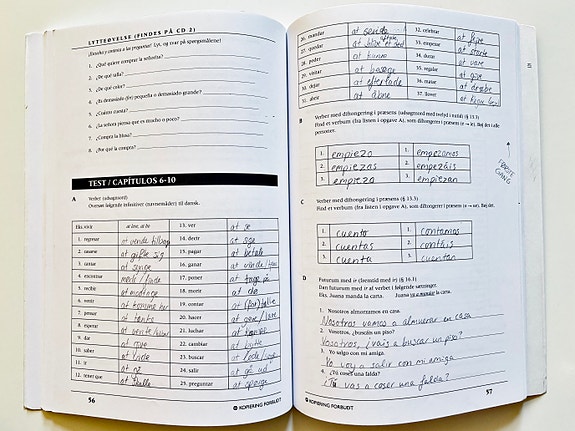 LYTTEØVELSE (FINDES PÅ CD 2)
¡Escucha y contesta a las preguntas! Lyt, og svar på spørgsmålene!
1. ¿Qué quiere comprar la señorita?
2. ¿De qué talla?
3. ¿De qué color?
4. ¿Es demasiado pequeña o demasiado grande?
5. ¿Cuánto cuesta?
6. ¿La señora piensa que es mucho o poco?
7. ¿Compra la blusa?
8. ¿Por qué la compra?
TEST / CAPÍTULOS 6-10
A Verber (udsagnsord)
Oversæt følgende infinitiver (navnemåder) til dansk.
Eks. vivir at leve, at bo
1. regresar at vende tilbage
2. casarse at gifte sig
3. cantar at synge
4. encontrar møde / finde
5. recibir at modtage
6. venir at komme her
7. pensar at tænke
8. esperar at vente
9. dar
10. saber at vide
11. ir
12. tener que at skulle
13. ver at se
14. decir at sige
15. pagar at betale
16. ganar at vinde
17. poner
18. morir at dø
19. contar
20. hacer at gøre
21. luchar at kæmpe
22. cambiar at bytte
23. buscar at lede
24. salir at gå ud
25. preguntar at spørge
56
KOPIERING FORBUDT
26. mandar at sende
27. quedar
28. poder at kunne
29. visitar at besøge
30. dejar at efterlade
31. abrir at åbne
32. celebrar at fejre
33. empezar at starte
34. ser at være
35. regalar at give
36. matar at dræbe
37. llover
B Verber med diftongering i præsens (udsagnsord med tvelyd i nutid) (§ 13.3)
Find et verbum (fra listen i opgave A), som diftongerer i præsens (e → ie). Bøj det i alle
personer.
1. empiezo 1. empezamos
2. empiezas 2. empezáis
3. empieza 3. empiezan
FØRSTE
GANG
C Verber med diftongering i præsens (§ 13.3)
Find et verbum (fra listen i opgave A), som diftongerer i præsens (o → ue). Bøj det.
1. cuento 1. contamos
2. cuentas 2. contáis
3. cuenta 3. cuentan
D Futurum med ir (fremtid med ir) (§ 16.1)
Dan futurum med ir af verbet i følgende sætninger.
Eks. Juana manda la carta. Juana va a mandar la carta.
1. Nosotros almorzamos en casa.
Nosotros vamos a almuerzar en casa
2. Vosotros, ¿buscáis un piso?
Vosotros, ¿vais a buscar un piso?
3. Yo salgo con mi amiga.
Yo voy a salir con mi amiga
4. ¿Tú coses una falda?
¿Tú vas a coser una falda?
57
KOPIERING FORBUDT